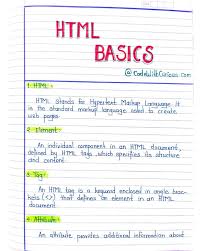 HTML
BASICS
@ CodeWithCurious.com
1. HTML :
HTML Stands for Hypertext Markup Language. It
is the standard markup language used to create
web pages
2. Element :
An individual component in an HTML document,
defined by HTML tags, which specifies its structure
and content.
3. Tag :
An HTML tag is a keyword enclosed in angle brac-
kets (<>) that defines an element in an HTML
document
4. Attribute :
An attribute provides additional information about